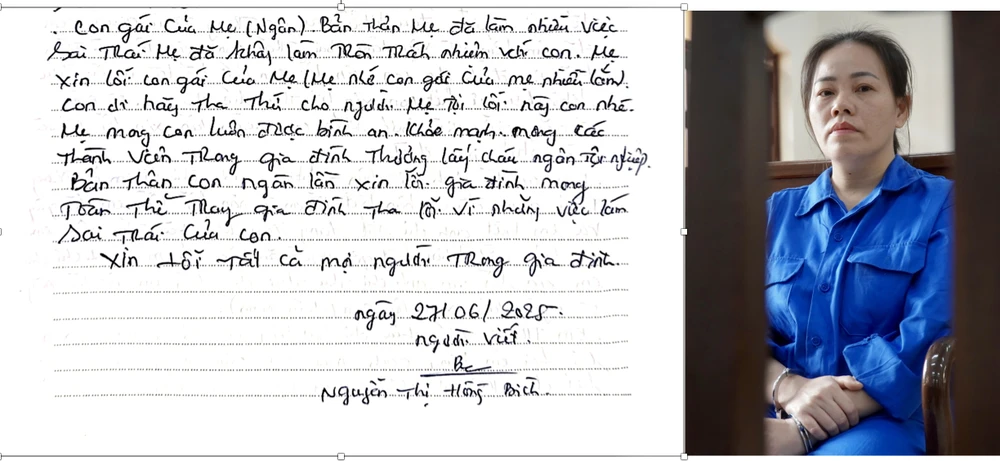 . Con gái Của Mẹ (Ngân). Bản Thân Mẹ đã làm nhiều việc
Sai Trái Mẹ đã không làm Tròn Trách nhiệm với con. Mẹ
xin lỗi con gái Của Mẹ (Mẹ nhé con gái Của mẹ nhiều lắm)
Con ơi hãy Tha Thứ cho người Mẹ Tội lỗi này con nhé.
Mẹ mong con luôn được bình an. Khỏe mạnh. mong các
Thành Viên Trong gia đình Thương lấy cháu ngân Tội nghiệp.
Bản Thân con ngàn lần xin lỗi gia đình mong
Toàn Thể gia đình Tha lỗi vì những việc làm
Sai Trái Của con.
Xin Lỗi Tất cả mọi người Trong gia đình.
ngày 27/06/2025.
người viết.
Nguyễn Thị Hồng Bích.